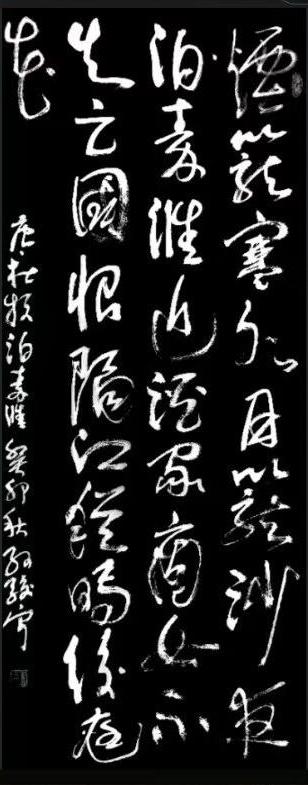 煙籠寒水月籠沙夜
泊秦淮近酒家商女不
知亡國恨隔江猶唱後庭
花
唐杜牧泊秦淮癸卯秋